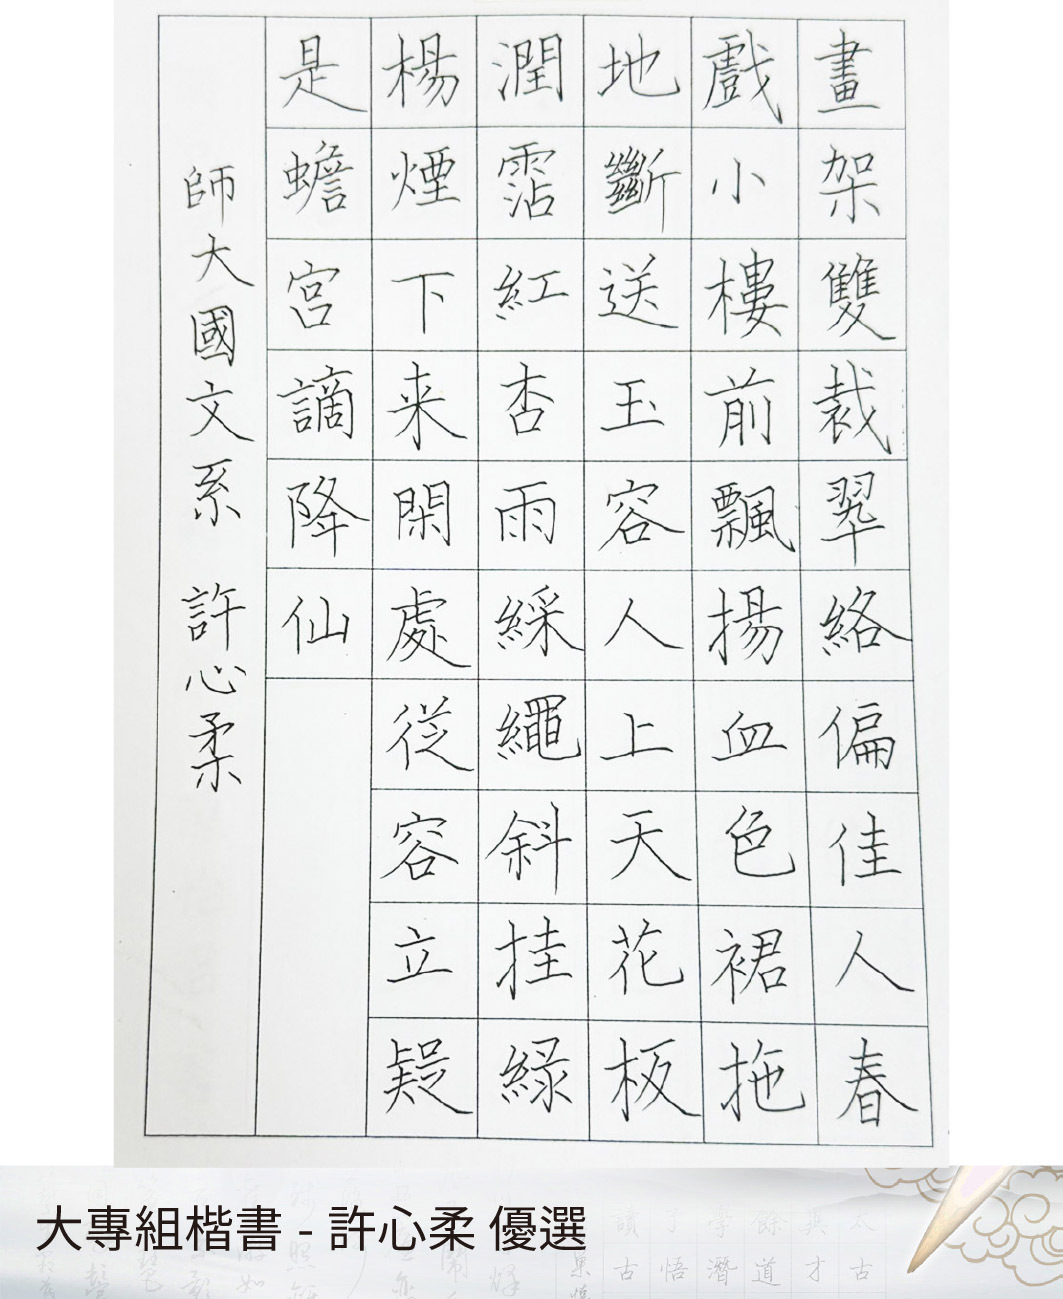 畫架雙裁翠絡偏佳人春
戲小樓前飄揚血色裙拖
地斷送玉容人上天花板
潤霑紅杏雨綵繩斜挂緑
楊煙下来閑處從容立疑
是蟾宮謫降仙
師大國文系 許心柔
大專組楷書 - 許心柔 優選